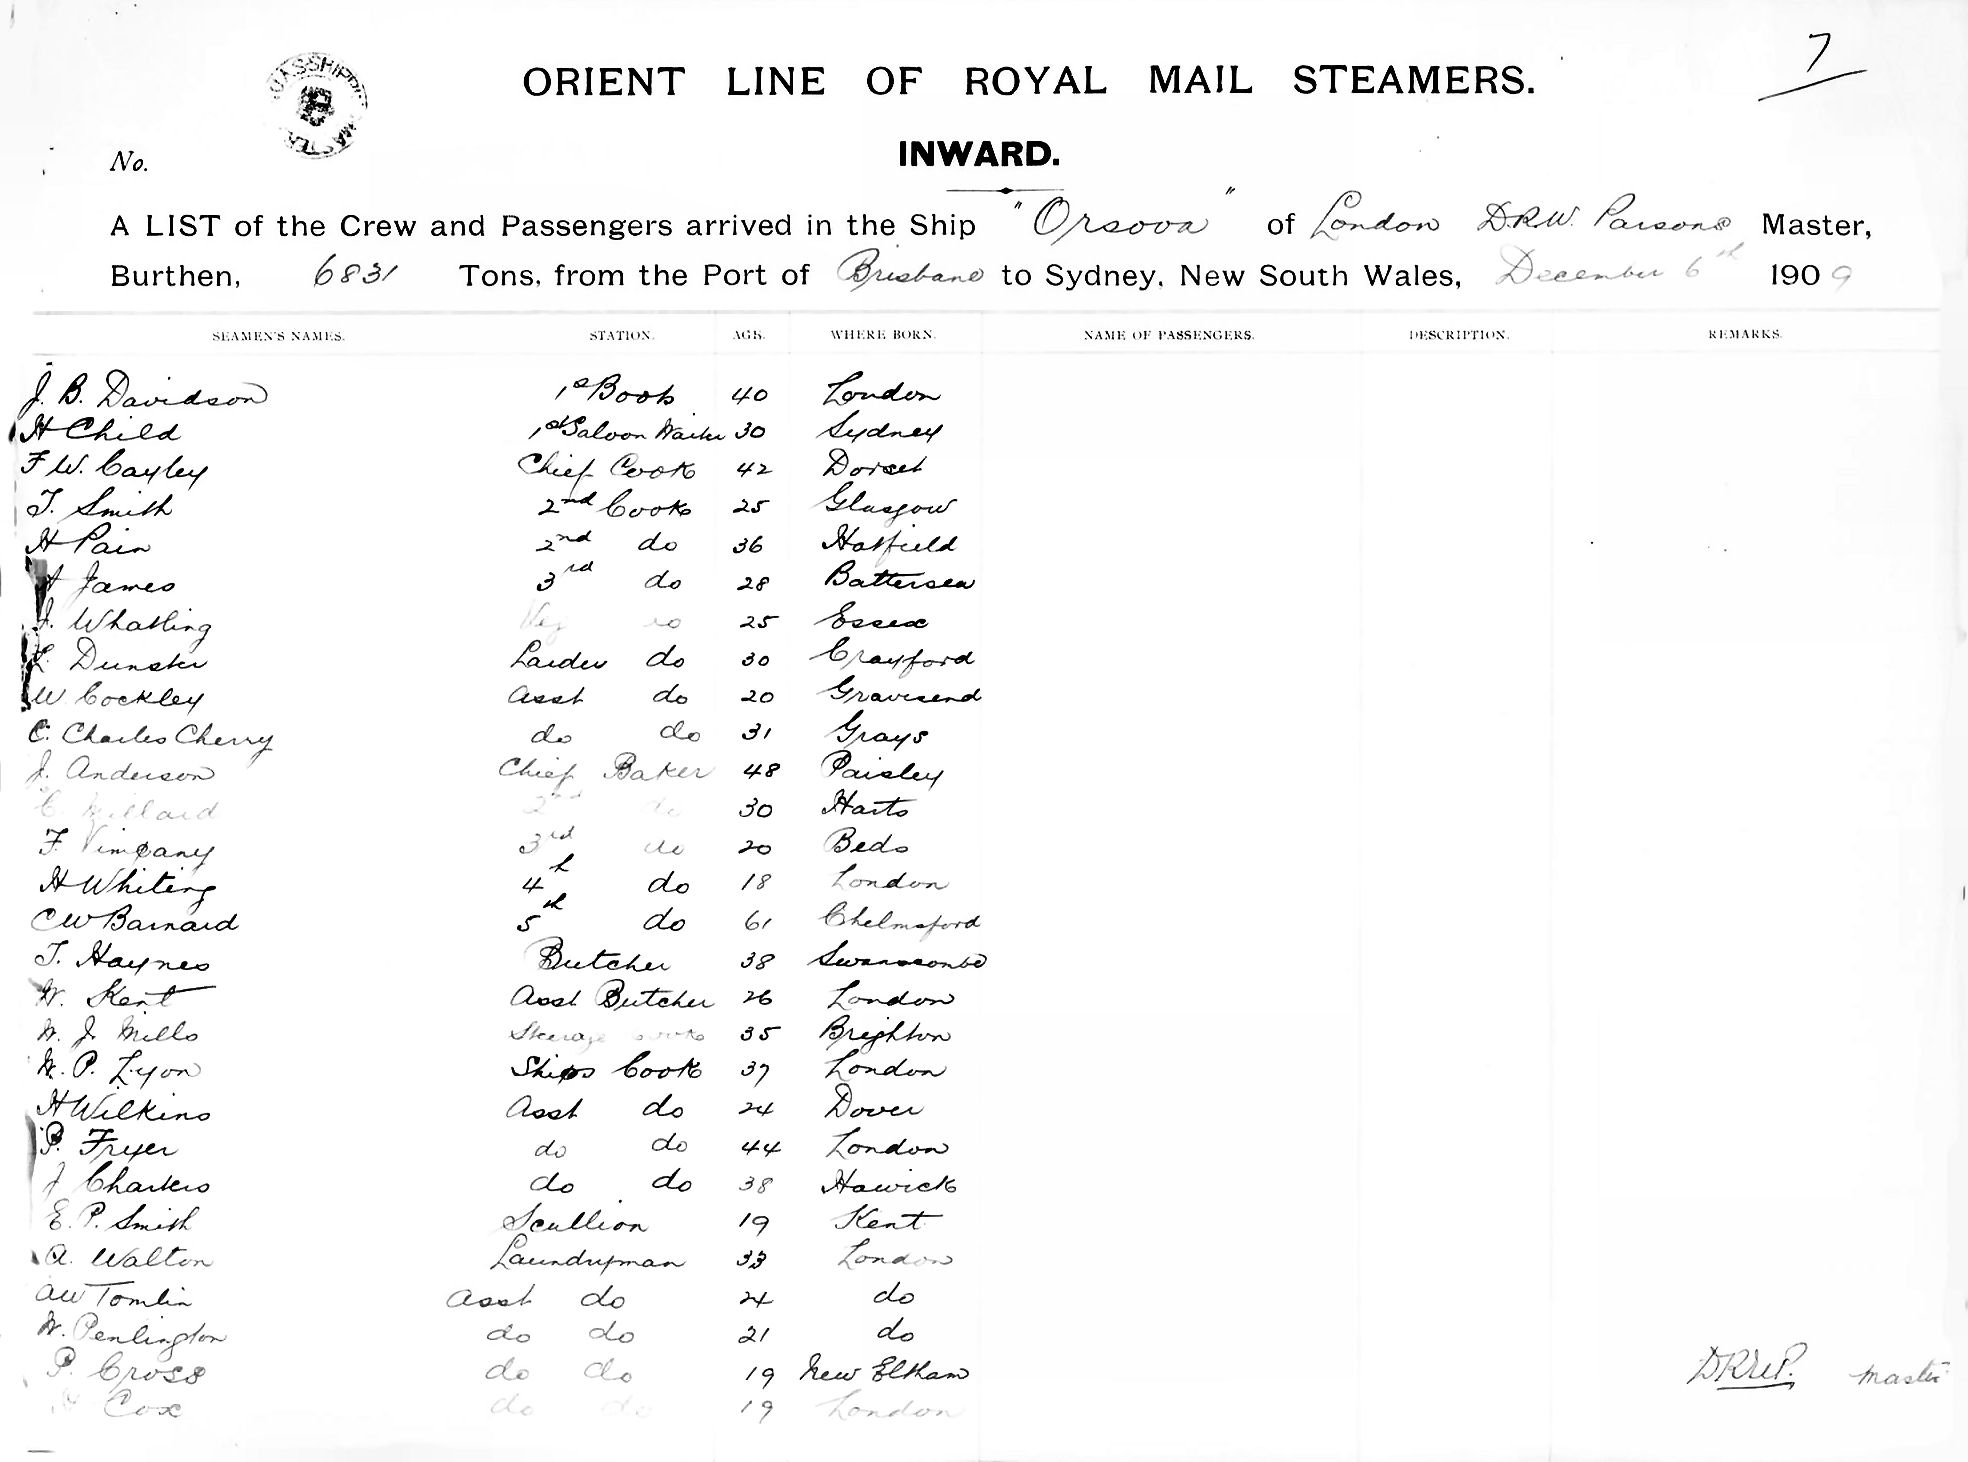 7
ORIENT LINE OF ROYAL MAIL STEAMERS.
INWARD.
No.
A LIST of the Crew and Passengers arrived in the Ship "Orsova" of London D.R.W. Parsons Master,
Burthen, 6831 Tons, from the Port of Brisbane to Sydney, New South Wales, December 6th 1909
SEAMEN'S NAMES. STATION. AGE. WHERE BORN. NAME OF PASSENGERS. DESCRIPTION. REMARKS.
J. B. Davidson 40 London
H Child 1st Saloon Waiter 30 Sydney
F W. Cayley Chief Cook 42 Dorset
T. Smith 2nd Cook 25 Glasgow
H Pain 2nd do 36 Hatfield
James 3rd do 28 Battersea
J. Whatling Veg do 25 Essex
Dunster Larder do 30 Crayford
W Cockley Asst do 20 Gravesend
C. Charles Cherry do do 31 Grays
J. Anderson Chief Baker 48 Paisley
C. Millard 2nd do 30 Harts
F. Vimpany 3rd do 20 Beds
H Whiting 4th do 18 London
C W Barnard 5th do 61 Chelmsford
T. Haynes Butcher 38 Swanscombe
W. Kent Asst Butcher 26 London
W. J. Mills Steerage Cook 35 Brighton
W. P. Lyon Ships Cook 37 London
H Wilkins Asst do 24 Dover
P. Fryer do do 44 London
J Charters do do 38 Hawick
E. P. Smith Scullion 19 Kent
A. Walton Laundryman 33 London
A W Tomlin Asst do 24 do
W. Penlington do do 21 do
P. Cross do do 19 New Eltham
Cox do do 19 London
D.R.W.P. Master